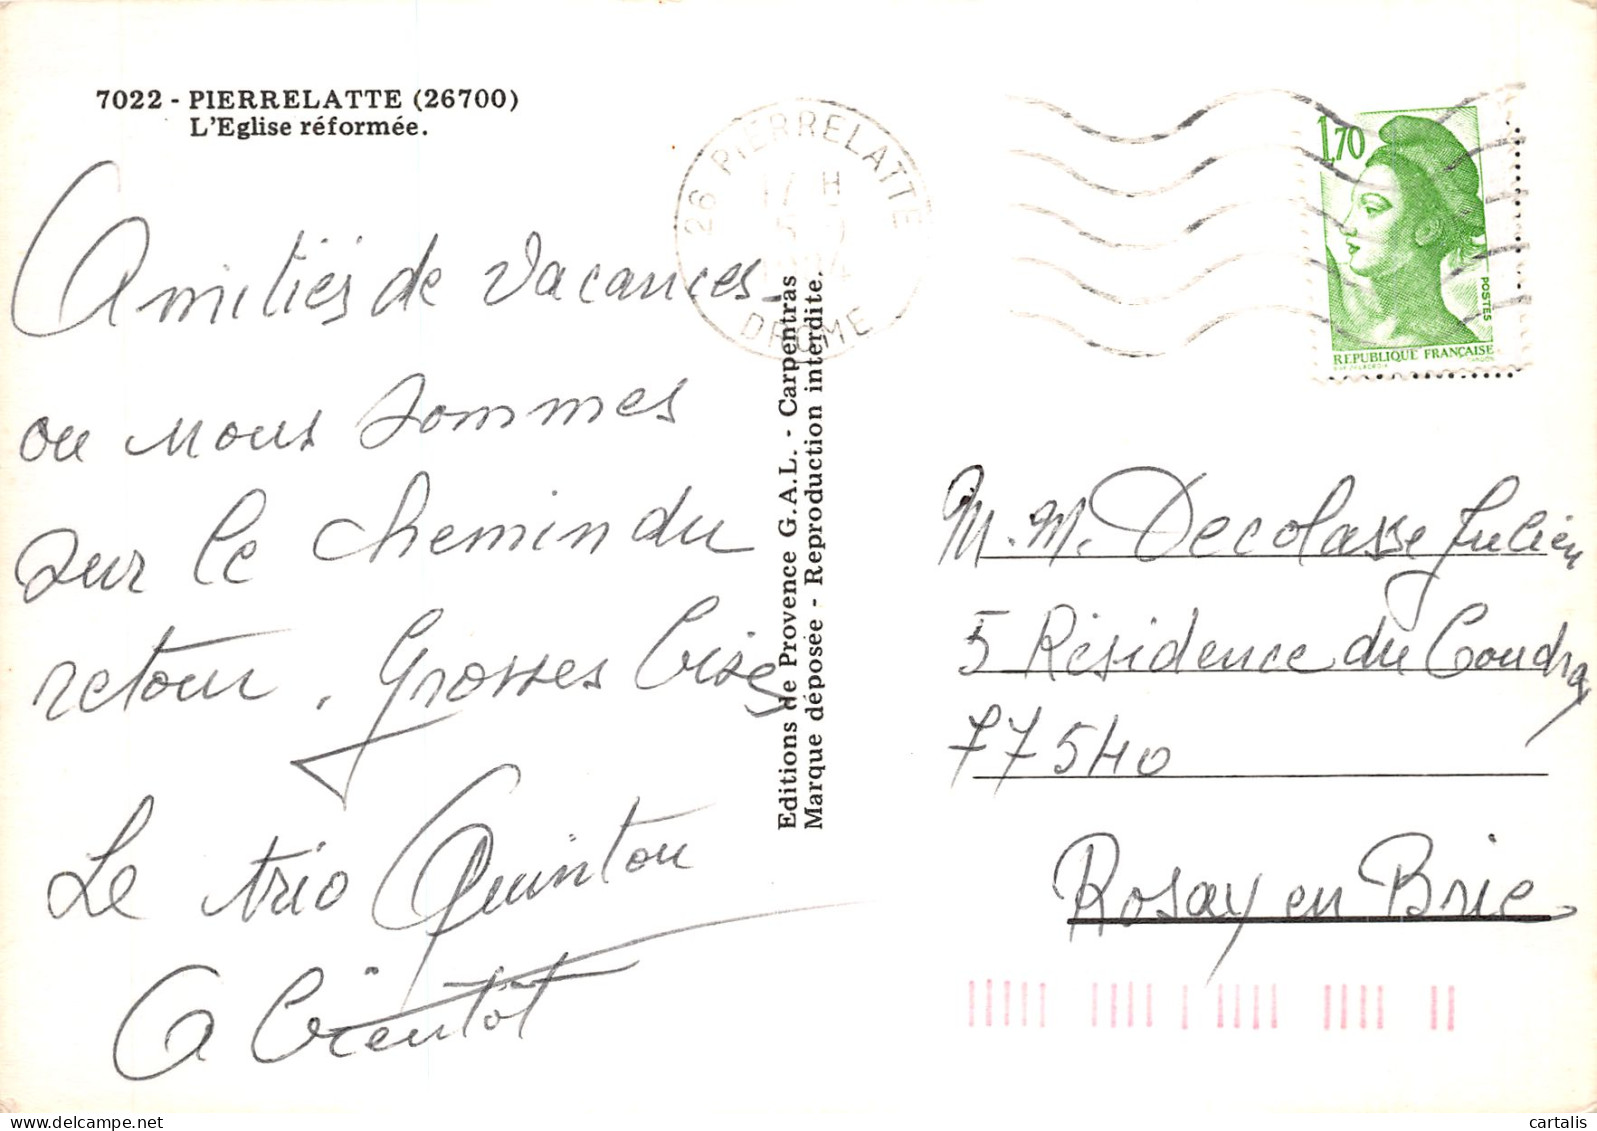 7022 - PIERRELATTE (26700)
L'Eglise réformée.
Amitiés de Vacances
ou nous sommes
sur le chemin du
retour, Grosses bises
Le trio Quinton
A bientot
Editions de Provence G.A.L. - Carpentras
Marque déposée - Reproduction interdite.
26 PIERRELATTE
17 H
DROME
1,70
POSTES
REPUBLIQUE FRANÇAISE
M. M. Decolasse Julien
5 Résidence du Coudray
77540
Rosay en Brie
cartalis